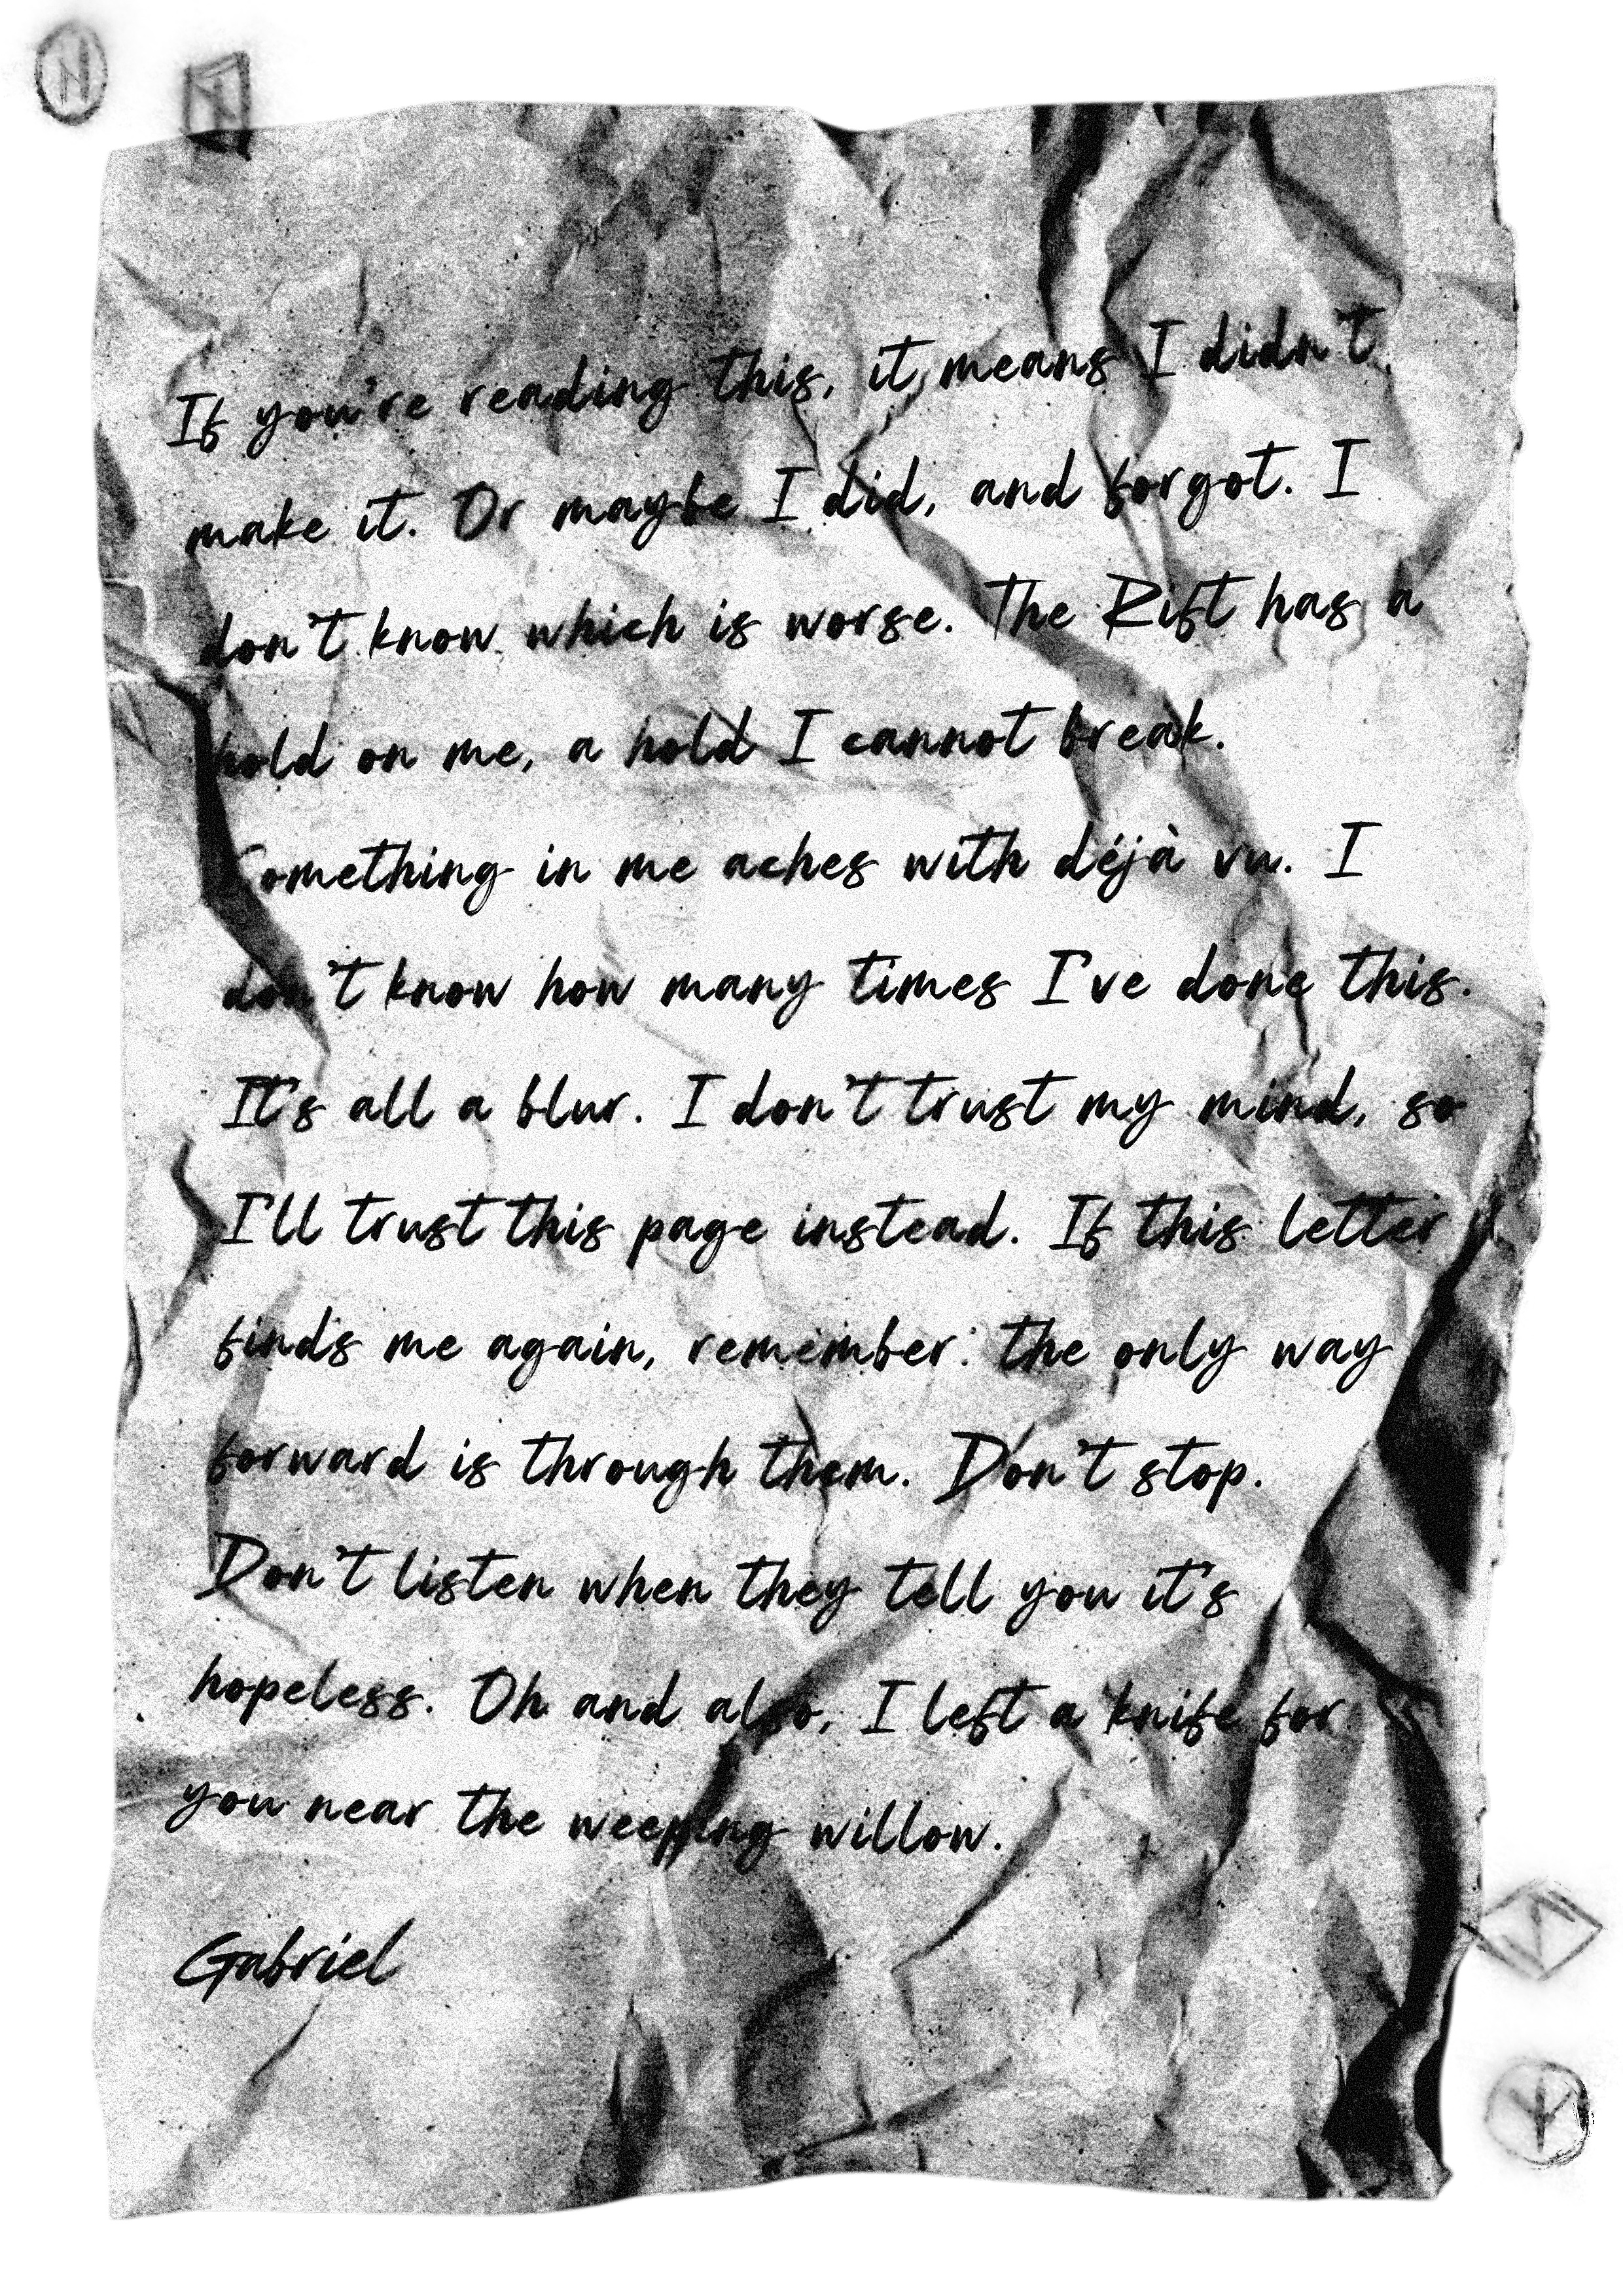 If you're reading this, it means I didn't
make it. Or maybe I did, and forgot. I
don't know which is worse. The Rift has a
hold on me, a hold I cannot break.
Something in me aches with déjà vu. I
don't know how many times I've done this.
It's all a blur. I don't trust my mind, so
I'll trust this page instead. If this letter
finds me again, remember: the only way
forward is through them. Don't stop.
Don't listen when they tell you it's
hopeless. Oh and also, I left a knife for
you near the weeping willow.
Gabriel